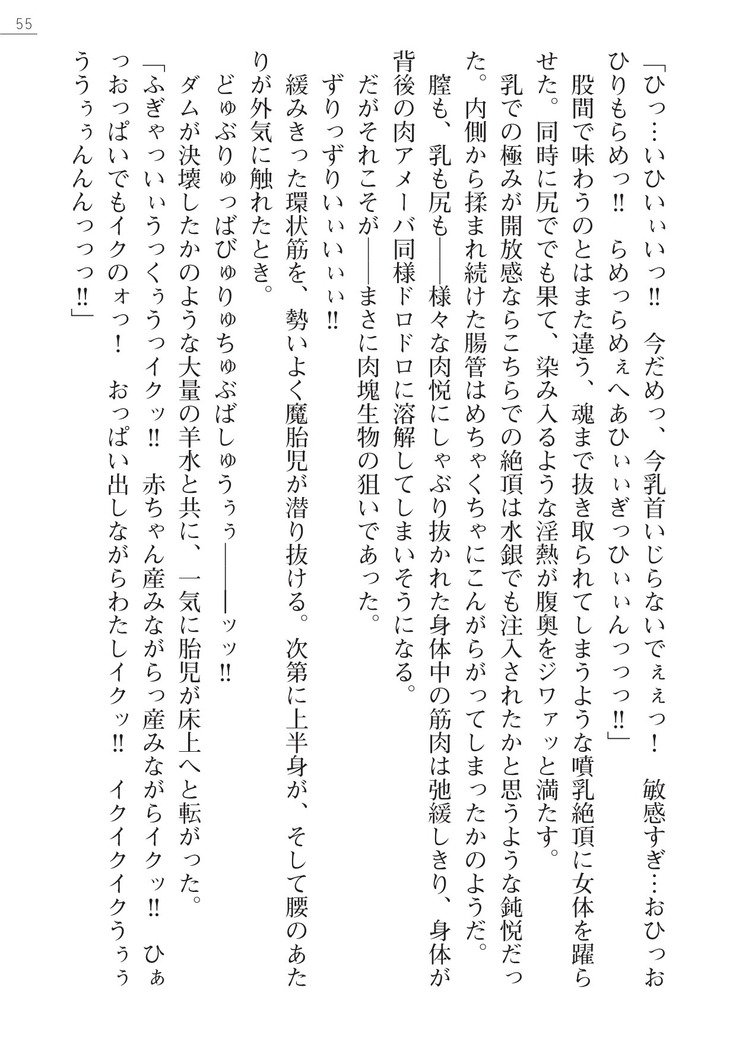 55
「ひっ…いひぃぃいっ‼　今だめっ、今乳首いじらないでぇぇっ！　敏感すぎ…おひっお
ひりもらめっ‼　らめっらめぇへあひぃぃぎっひぃぃんっっっ‼」
　股間で味わうのとはまた違う、魂まで抜き取られてしまうような噴乳絶頂に女体を躍ら
せた。同時に尻ででも果て、染み入るような淫熱が腹奥をジワァッと満たす。
　乳での極みが開放感ならこちらでの絶頂は水銀でも注入されたかと思うような鈍悦だっ
た。内側から揉まれ続けた腸管はめちゃくちゃにこんがらがってしまったかのようだ。
　膣も、乳も尻も――様々な肉悦にしゃぶり抜かれた身体中の筋肉は弛緩しきり、身体が
背後の肉アメーバ同様ドロドロに溶解してしまいそうになる。
　だがそれこそが――まさに肉塊生物の狙いであった。
　ずりっずりいぃいぃぃ‼
　緩みきった環状筋を、勢いよく魔胎児が潜り抜ける。次第に上半身が、そして腰のあた
りが外気に触れたとき。
　どゅぶりゅっばびゅりゅちゅぶばしゅうぅぅ―――ッッ‼
　ダムが決壊したかのような大量の羊水と共に、一気に胎児が床上へと転がった。
「ふぎゃっいぃうっくぅうっイクッ‼　赤ちゃん産みながらっ産みながらイクッ‼　ひぁ
っおっぱいでもイクのォっ！　おっぱい出しながらわたしイクッ‼　イクイクイクうぅぅ
ううぅぅんんんっっっ‼」